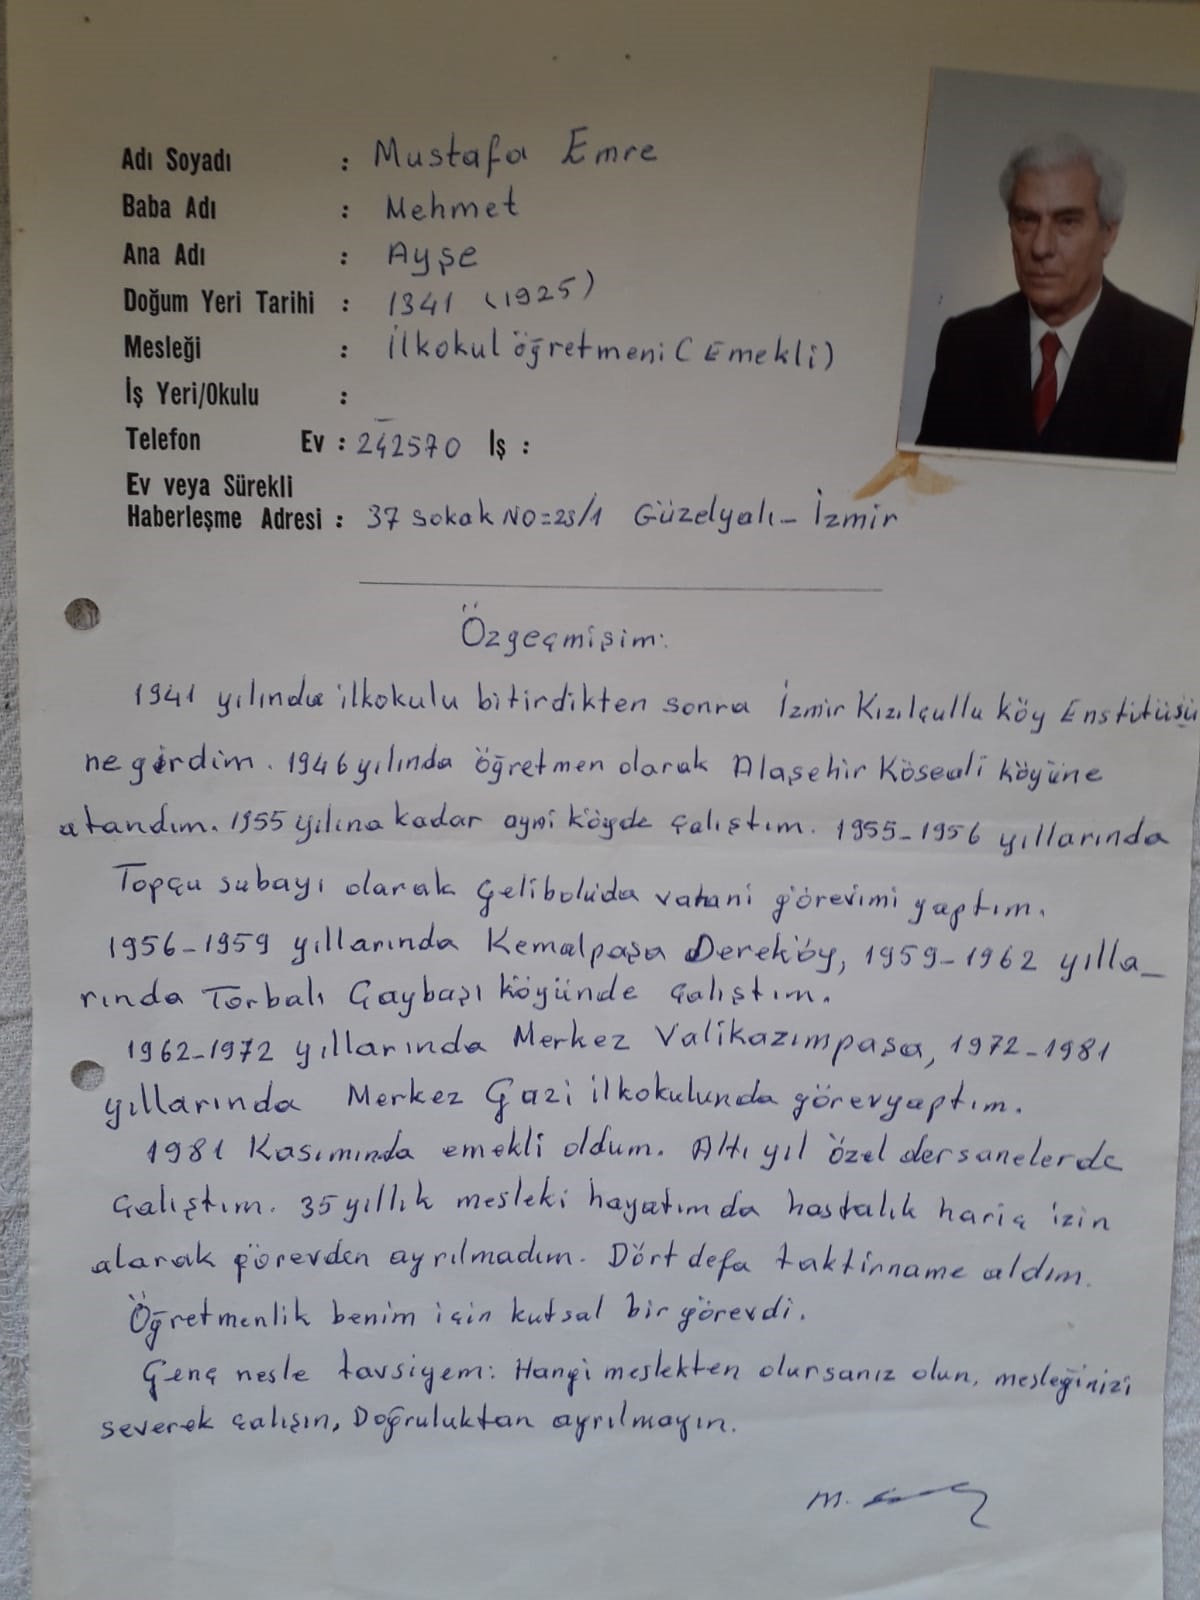 Adı Soyadı : Mustafa Emre
Baba Adı : Mehmet
Ana Adı : Ayşe
Doğum Yeri Tarihi : 1341 (1925)
Mesleği : İlkokul öğretmeni (Emekli)
İş Yeri/Okulu :
Telefon Ev : 242570 İş :
Ev veya Sürekli
Haberleşme Adresi : 37 sokak NO=23/1 Güzelyalı - İzmir
Özgeçmişim:
1941 yılında ilkokulu bitirdikten sonra İzmir Kızılçullu köy Enstitüsü
ne girdim. 1946 yılında öğretmen olarak Alaşehir Köseali köyüne
atandım. 1955 yılına kadar ayni köyde çalıştım. 1955-1956 yıllarında
Topçu subayı olarak Gelibolu'da vatani görevimi yaptım.
1956-1959 yıllarında Kemalpaşa Dereköy, 1959-1962 yılla_
rında Torbalı Çaybaşı köyünde çalıştım.
1962-1972 yıllarında Merkez Valikazımpaşa, 1972-1981
yıllarında Merkez Gazi ilkokulunda görevyaptım.
1981 Kasımında emekli oldum. Altı yıl özel dersanelerde
çalıştım. 35 yıllık mesleki hayatımda hastalık hariç izin
alarak görevden ayrılmadım. Dört defa taktirname aldım.
Öğretmenlik benim için kutsal bir görevdi.
Genç nesle tavsiyem: Hangi meslekten olursanız olun, mesleğinizi
severek çalışın, Doğruluktan ayrılmayın.
M.